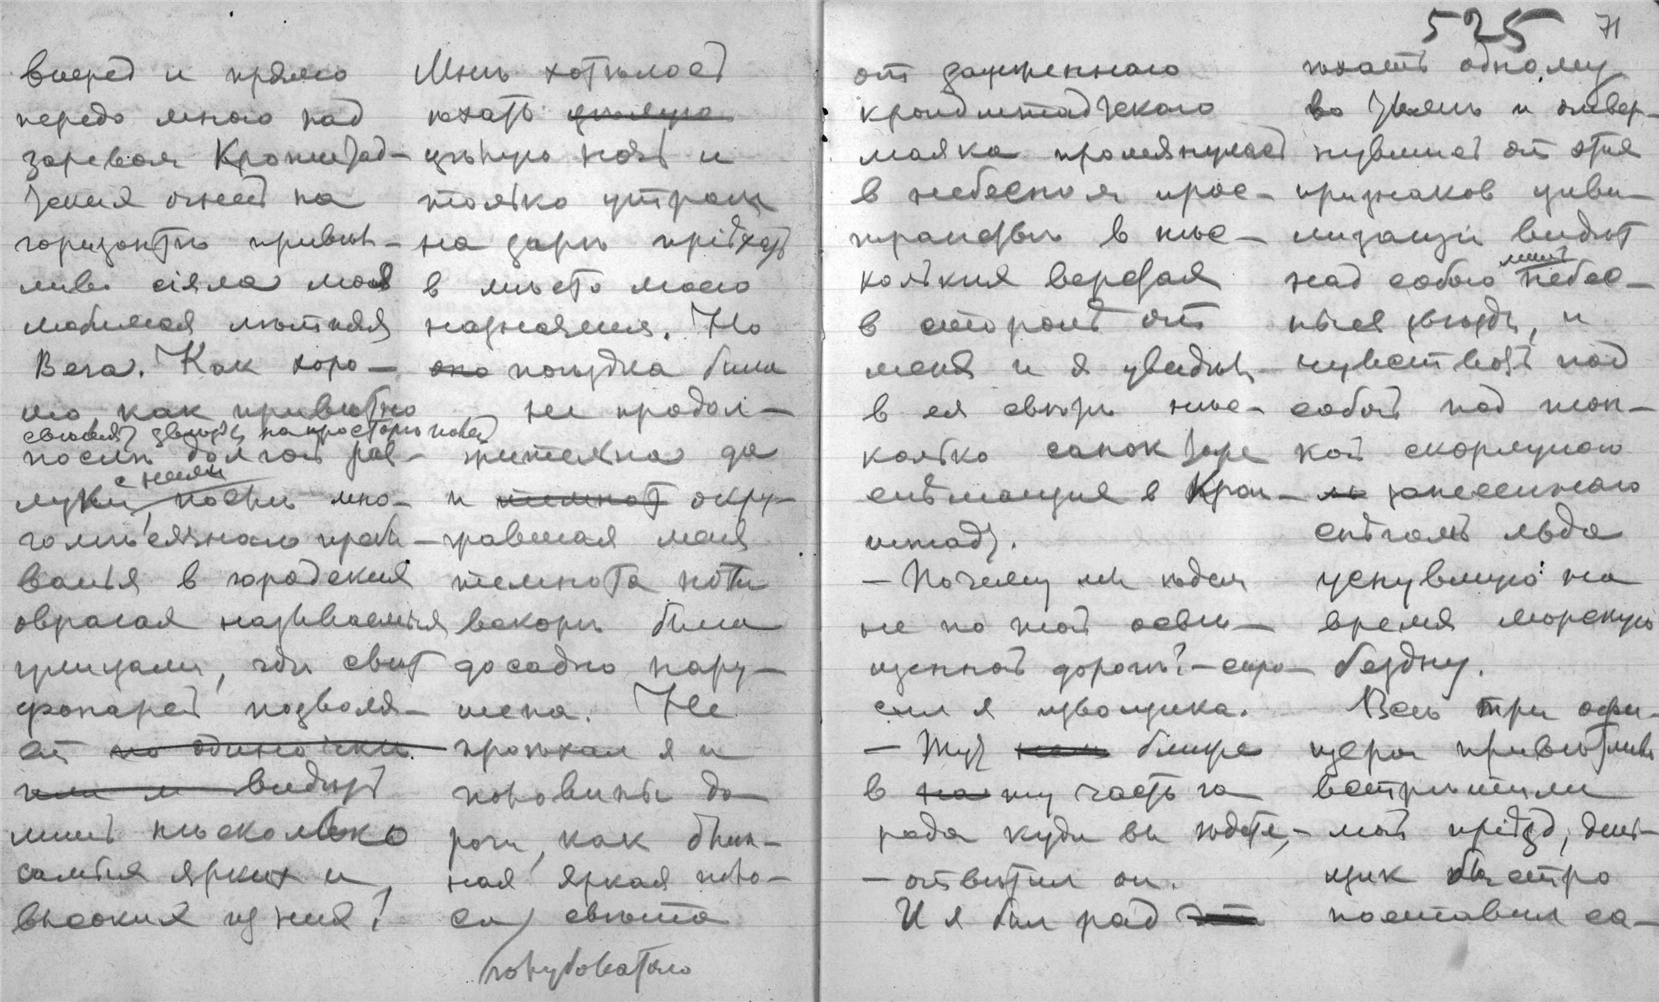 525 71
вперед и прямо
передо мною над
заревом Кронштад-
ских огней на
горизонте привет-
ливо сияла моя
любимая летняя
Вега. Как хоро-
шо, как приветно
светят звезды на просторе
после долгой раз-
луки с ними, после мно-
гомесячного пребы-
ванья в городских
оврагах называемых
улицами, где свет
фонарей позволя-
ет по одиночке
или видеть
лишь несколько
самых ярких и
высоких из них!
Мне хотелось
ехать целую
целую ночь и
только утром
на заре приехать
в место моего
назначения. Но
она поездка была
не продол-
жительна да
и темнот окру-
жавшая меня
темнота ночи
вскоре была
досадно нару-
шена. Не
проехал я и
половины до-
роги, как длин-
ная яркая поло-
са света
голубоватого
от зажженного
кронштадтского
маяка протянулась
в небесном прос-
транстве в нес-
кольких верстах
в стороне от
меня и я увидел
в ея свете нес-
колько санок тоже
спешащих в Крон-
штадт.
– Почему мы едем
не по той осве-
щенной дороге? – спро-
сил я извозчика.
– Тут нам ближе
в на ту часть го
рода куда вы едете, –
– ответил он.
И я был рад эт
ехать одному
во тьме и отвер-
нувшись от этих
признаков циви-
лизации видеть
над собою лишь небес-
ные звезды, и
чувствовать под
собой под тон-
кой скорлупою
занесенного
снегом льда
уснувшую на
время морскую
бездну.
Все три офи-
цера приветливо
встретили
мой приезд, ден-
щик быстро
поставил са-